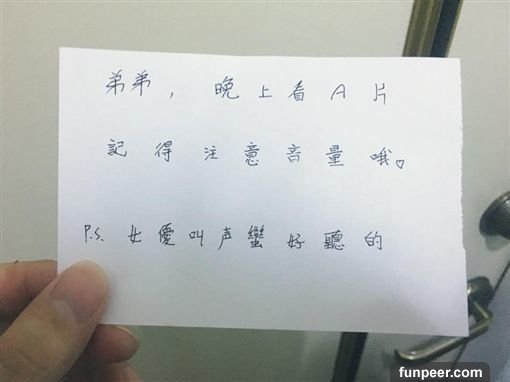 弟弟，晚上看A片
記得注意音量哦♡。
P.S. 女優叫声蠻好聽的
funpeer.com